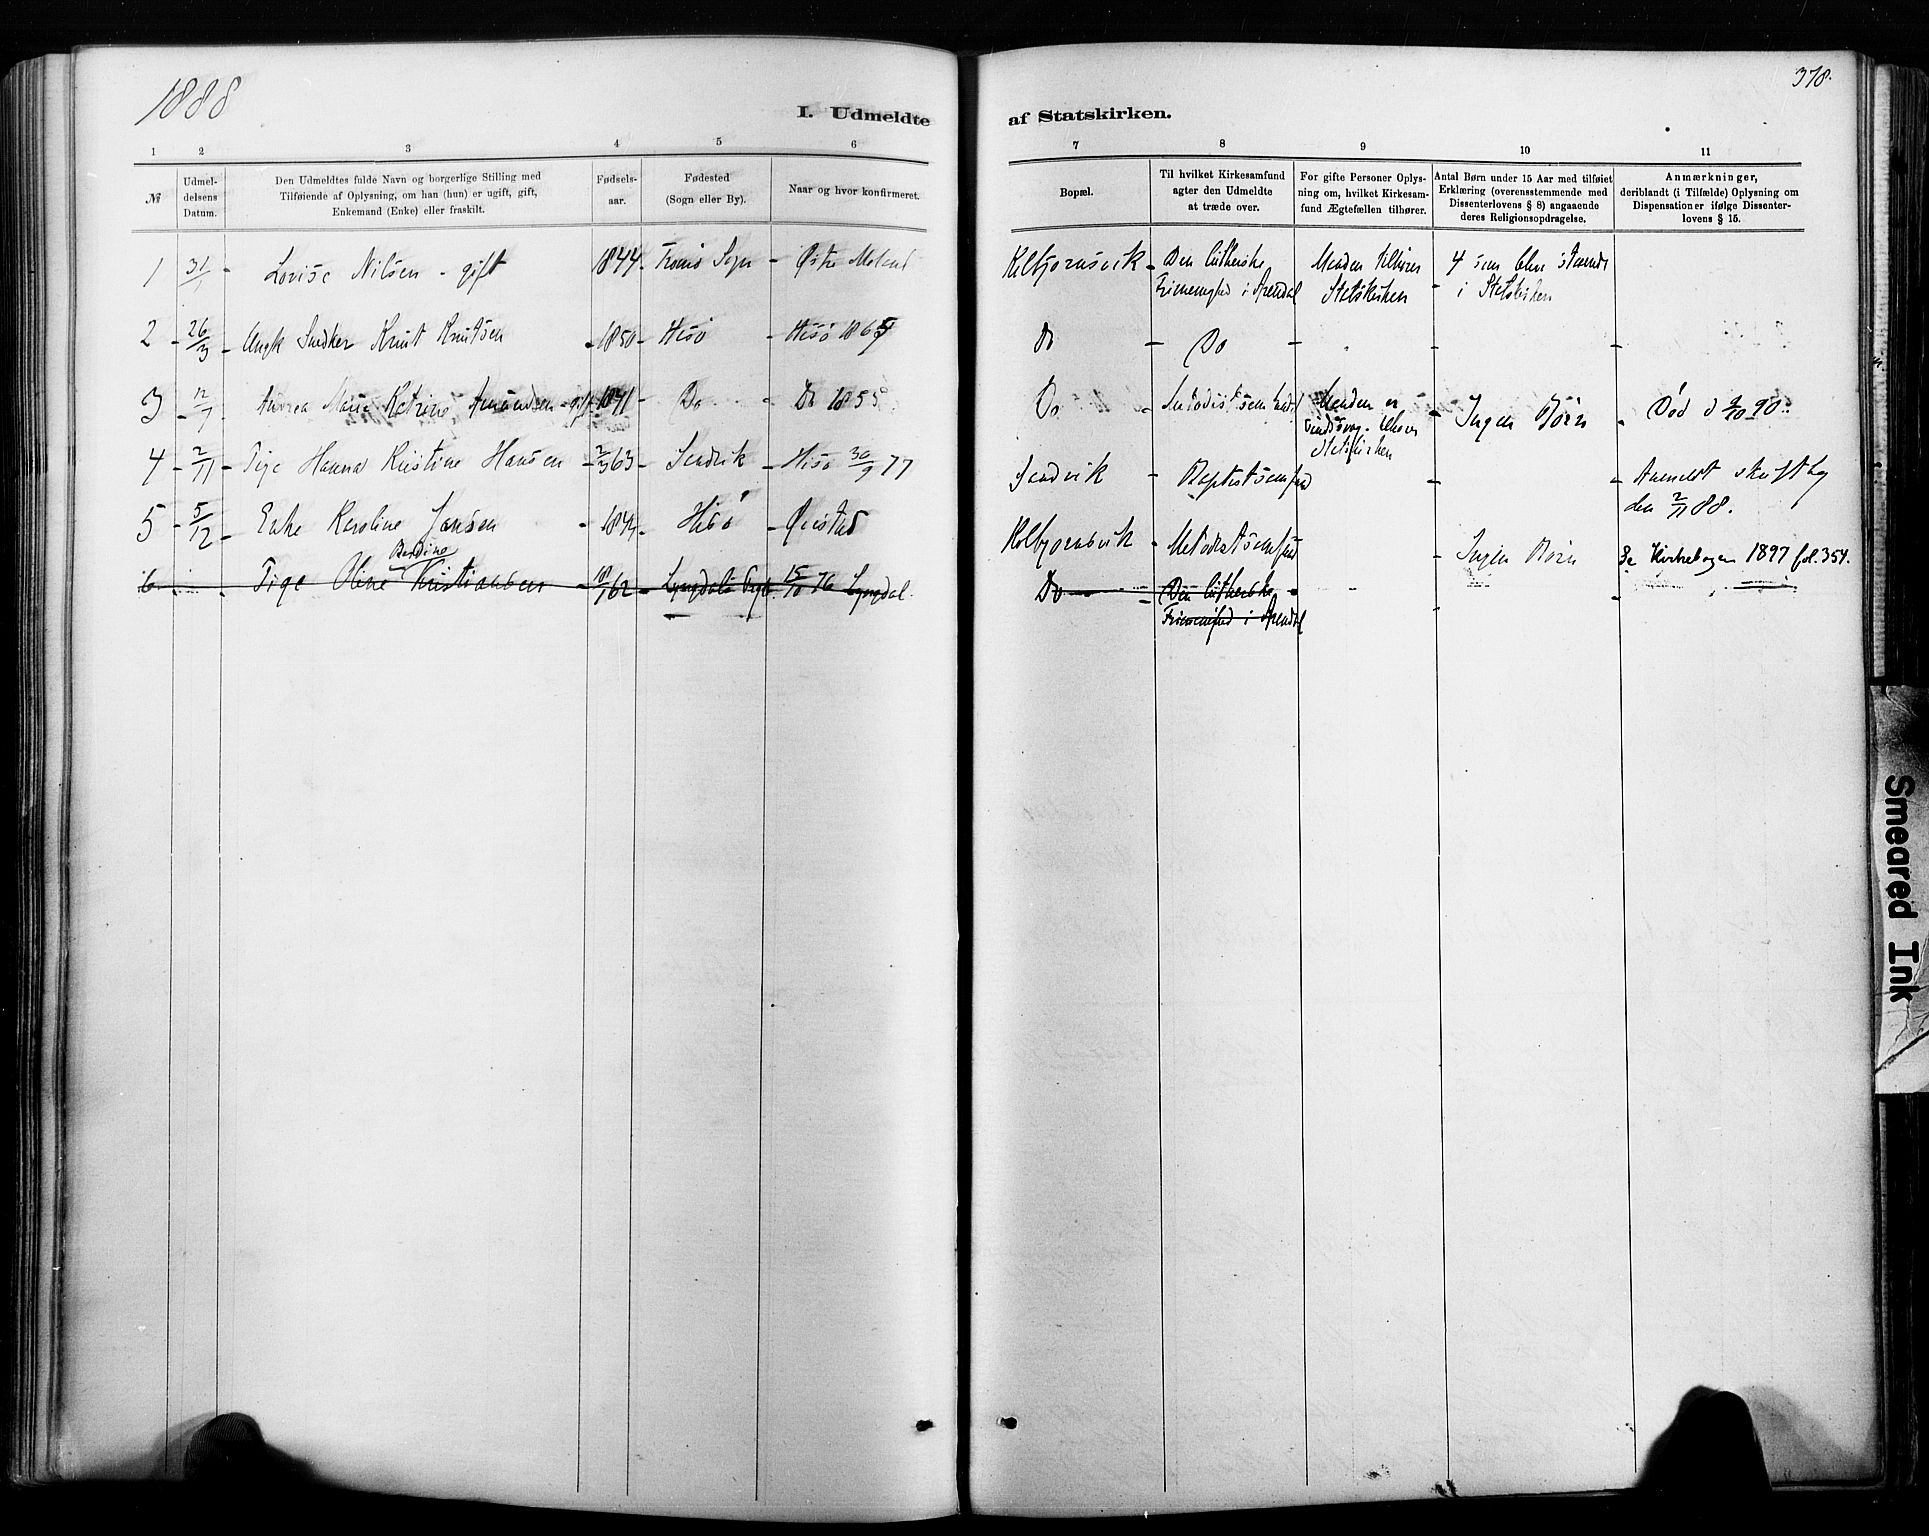 1888
378.
I. Udmeldte af Statskirken.
1 2 3 4 5 6 7 8 9 10 11
№
Udmel-
delsens
Datum.
Den Udmeldtes fulde Navn og borgerlige Stilling med
Tilføiende af Oplysning, om han (hun) er ugift, gift,
Enkemand (Enke) eller fraskilt.
Fødsels-
aar.
Fødested
(Sogn eller By).
Naar og hvor konfirmeret.
Bopæl.
Til hvilket Kirkesamfund
agter den Udmeldte
at træde over.
For gifte Personer Oplys-
ning om, hvilket Kirkesam-
fund Ægtefællen tilhører.
Antal Børn under 15 Aar med tilføiet
Erklæring (overensstemmende med
Dissenterlovens § 8) angaaende
deres Religionsopdragelse.
Anmærkninger,
deriblandt (i Tilfælde) Oplysning om
Dispensationer ifølge Dissenter-
lovens § 15.
1 31/1 - Lovise Nilsen - gift 1844 Tromø Sogn - Østre Moland
Kolbjornsvik - Den lutherske
Frimenighed i Arendal
Manden tilhører
Statskirken
4 som blive staaende
i Statskirken
2 - 26/3 - Ungk Snedker Knut Knutsen - 1850 - Hisø - Hisø 1865
Do - Do -
3 - 12/7 - Andrea Marie Katrine Amundsen - gift 1841 - Do - Do 1855
Do - Metodistsamfund
Manden er
Statskirken
Ingen Børn - Død d 2/10 90.
4 - 2/11 - Pige Hanna Kristine Hansen - 2/3 63 - Sandvik - Hisø 30/9 77
Sandvik Baptistsamfund
Anmeldt skriftlig
den 2/11 88.
5 - 5/12 - Enke Karoline Jansen - 184 - Hisø - Øiestad
Kolbjornsvik - Metodistsamfund - Ingen Børn Se Kirkebogen 1897 fol. 354.
Berdine
6 Pige Oline Kristiansen - 10/1 62 - Lyngdals 15/10 76 Lyngdal
Do - Den lutherske
Frimenighed i Arendal
Smeared Ink